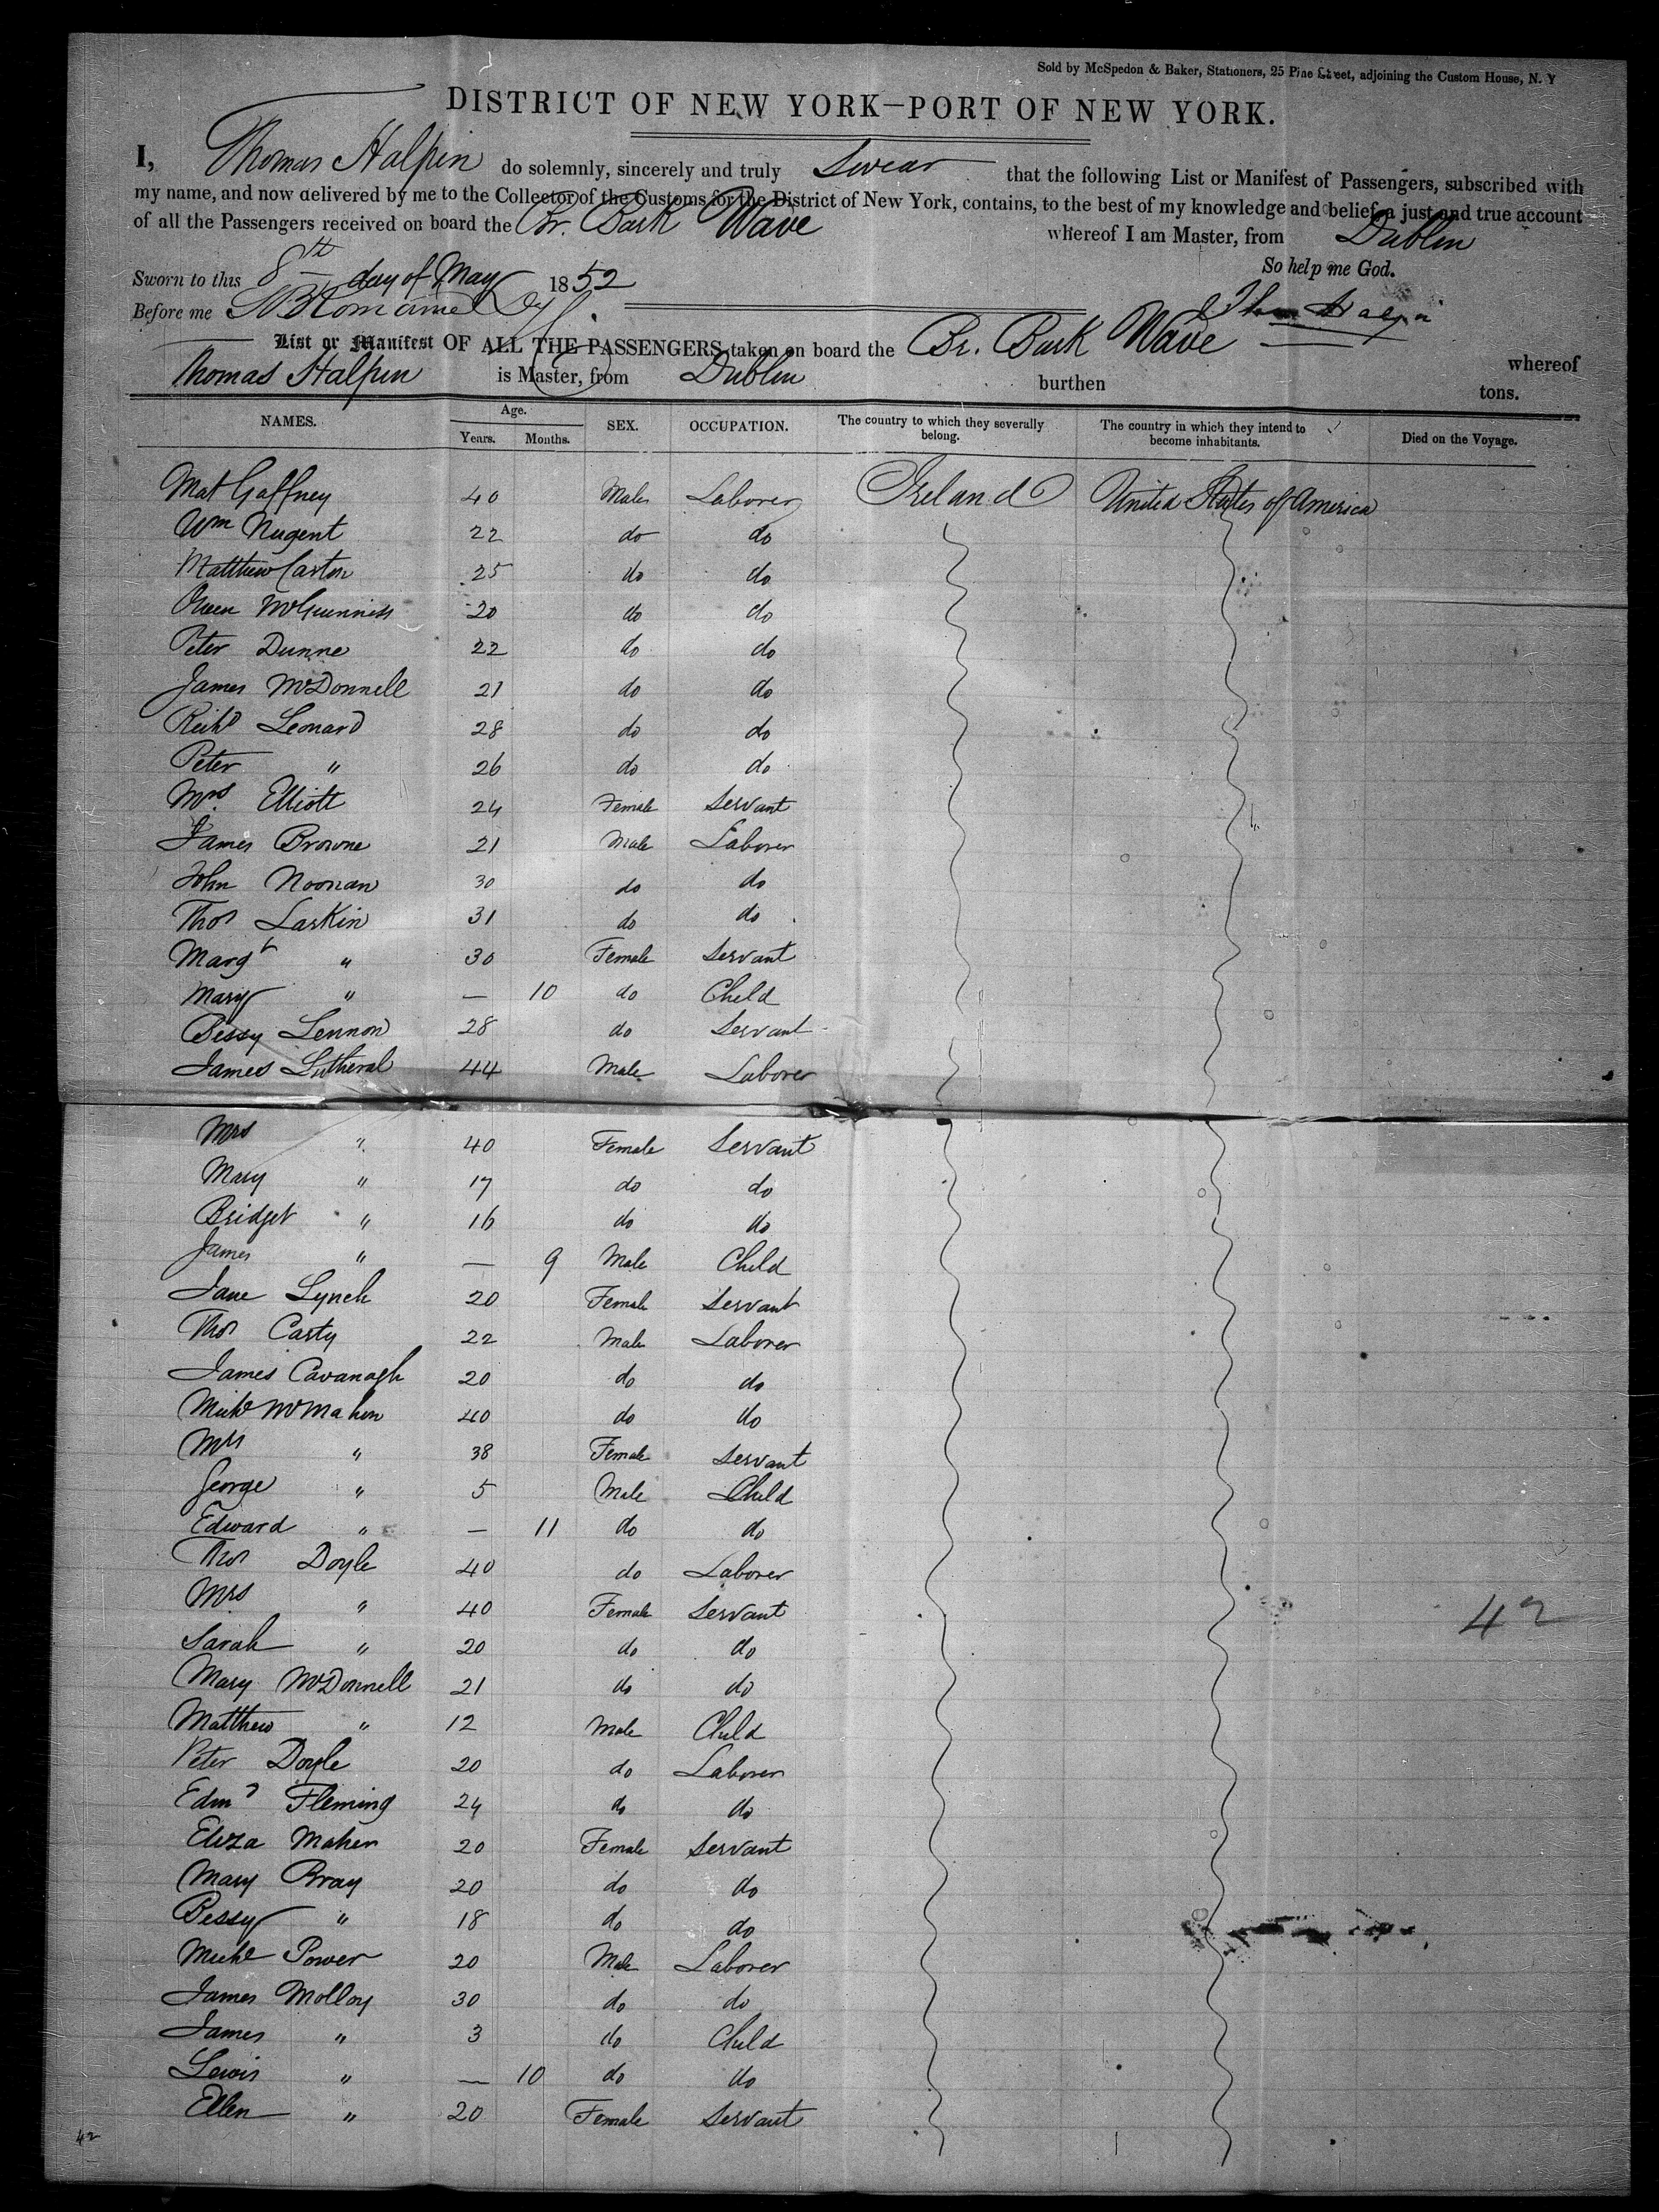 Sold by McSpedon & Baker, Stationers, 25 Pine Street, adjoining the Custom House, N. Y
DISTRICT OF NEW YORK—PORT OF NEW YORK.
I, Thomas Halpin do solemnly, sincerely and truly Swear that the following List or Manifest of Passengers, subscribed with
my name, and now delivered by me to the Collector of the Customs for the District of New York, contains, to the best of my knowledge and belief a just and true account
of all the Passengers received on board the Br. Bark Wave whereof I am Master, from Dublin
So help me God.
Sworn to this 8th day of May 1852
Before me
Thos Halpin
List or Manifest OF ALL THE PASSENGERS taken on board the Br. Bark Wave whereof
Thomas Halpin is Master, from Dublin burthen tons.
NAMES. Age. Years. Months. SEX. OCCUPATION. The country to which they severally belong. The country in which they intend to become inhabitants. Died on the Voyage.
Mat Gaffney 40 Male Laborer Ireland United States of America
Wm Nugent 22 do do
Matthew Carton 25 do do
Owen McGuinness 20 do do
Peter Dunne 22 do do
James McDonnell 21 do do
Richd Leonard 28 do do
Peter " 26 do do
Mrs. Elliott 24 Female Servant
James Browne 21 Male Laborer
John Noonan 30 do do
Thos Larkin 31 do do
Margt " 30 Female Servant
Mary " — 10 do Child
Bessy Lennon 28 do Servant
James Lutheral 44 Male Laborer
Mrs " 40 Female Servant
Mary " 17 do do
Bridget " 16 do do
James " — 9 Male Child
Jane Lynch 20 Female Servant
Thos Carty 22 Male Laborer
James Cavanagh 20 do do
Michl McMahon 40 do do
Mrs " 38 Female Servant
George " 5 Male Child
Edward " — 11 do do
Thos Doyle 40 do Laborer
Mrs " 40 Female Servant
42
Sarah " 20 do do
Mary McDonnell 21 do do
Matthew " 12 Male Child
Peter Doyle 20 do Laborer
Edmd Fleming 24 do do
Eliza Maher 20 Female Servant
Mary Bray 20 do do
Bessy " 18 do do
Michl Power 20 Male Laborer
James Molloy 30 do do
James " 3 do Child
Lewis " — 10 do do
Ellen " 20 Female Servant
42